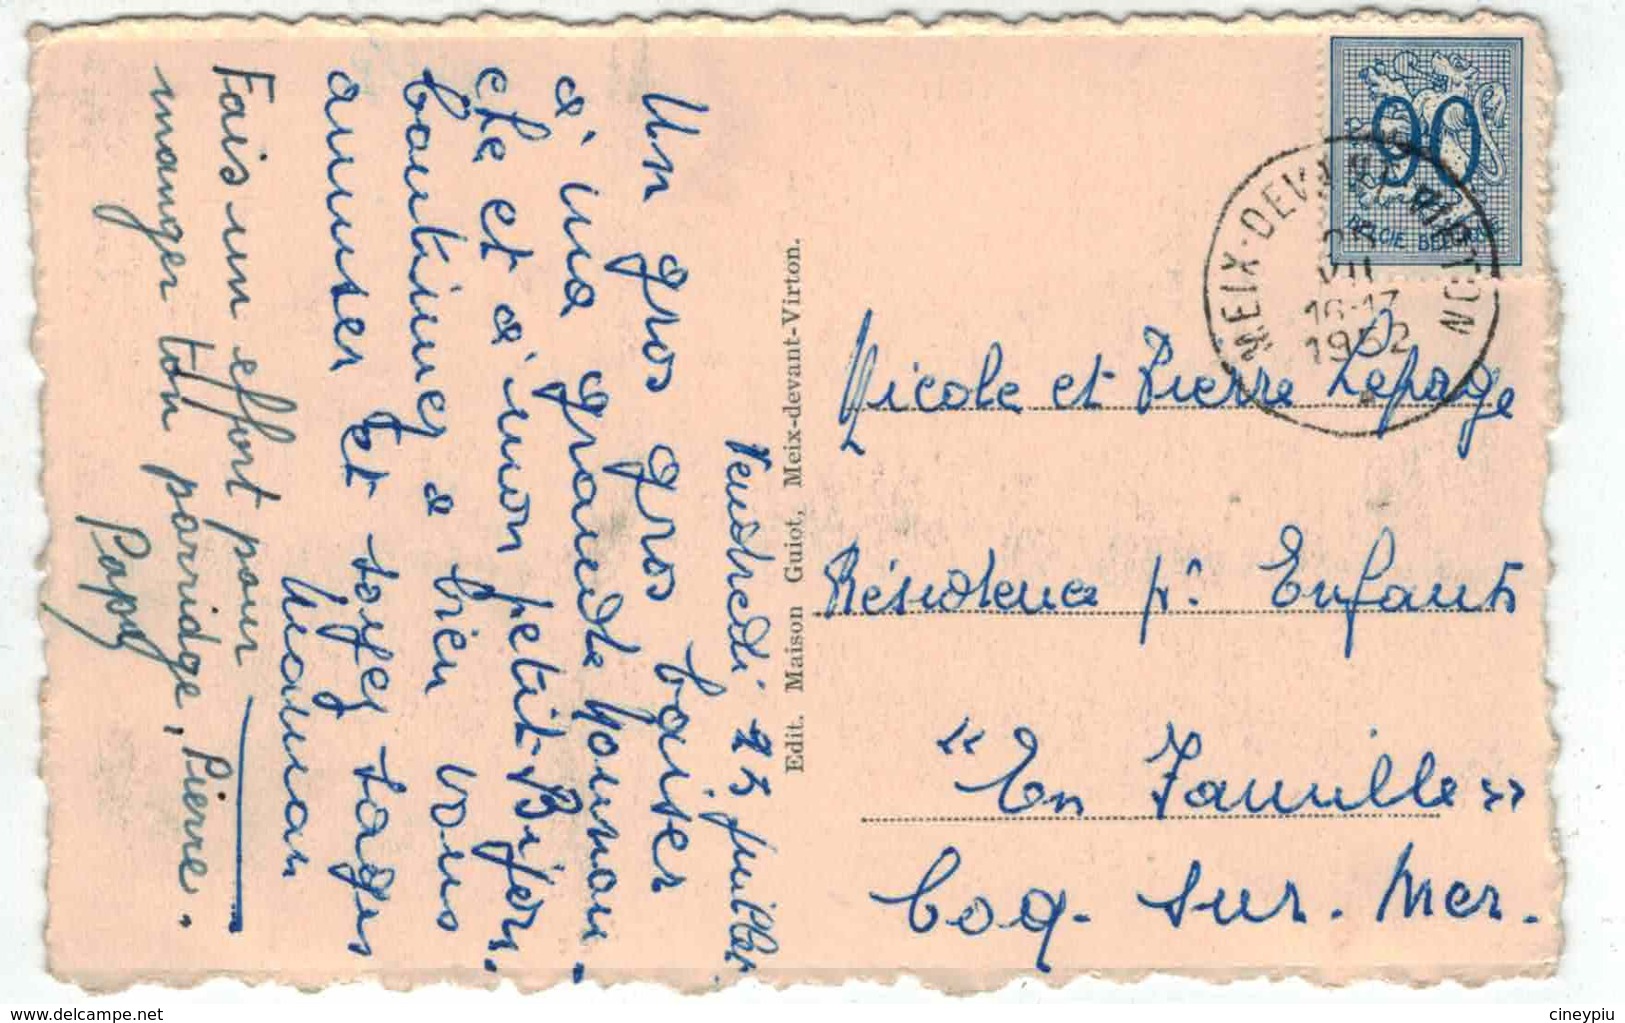 Vendredi 25 juillet
Un gros gros baiser
à ma grande Nounou-
che et à mon petit Bijou.
Continuez à bien vous
amuser et soyez sages
Maman
Fais un effort pour
manger ton porridge, Pierre.
Papa
Edit. Maison Guiot, Meix-devant-Virton.
90
BELGIE BELGIQUE
MEIX-DEVANT-VIRTON
25
VII
16-17
1952
Nicole et Pierre Lepage
Résidence pr Enfants
"En Famille"
Coq-sur-Mer.
delcampe.net
cineypiu